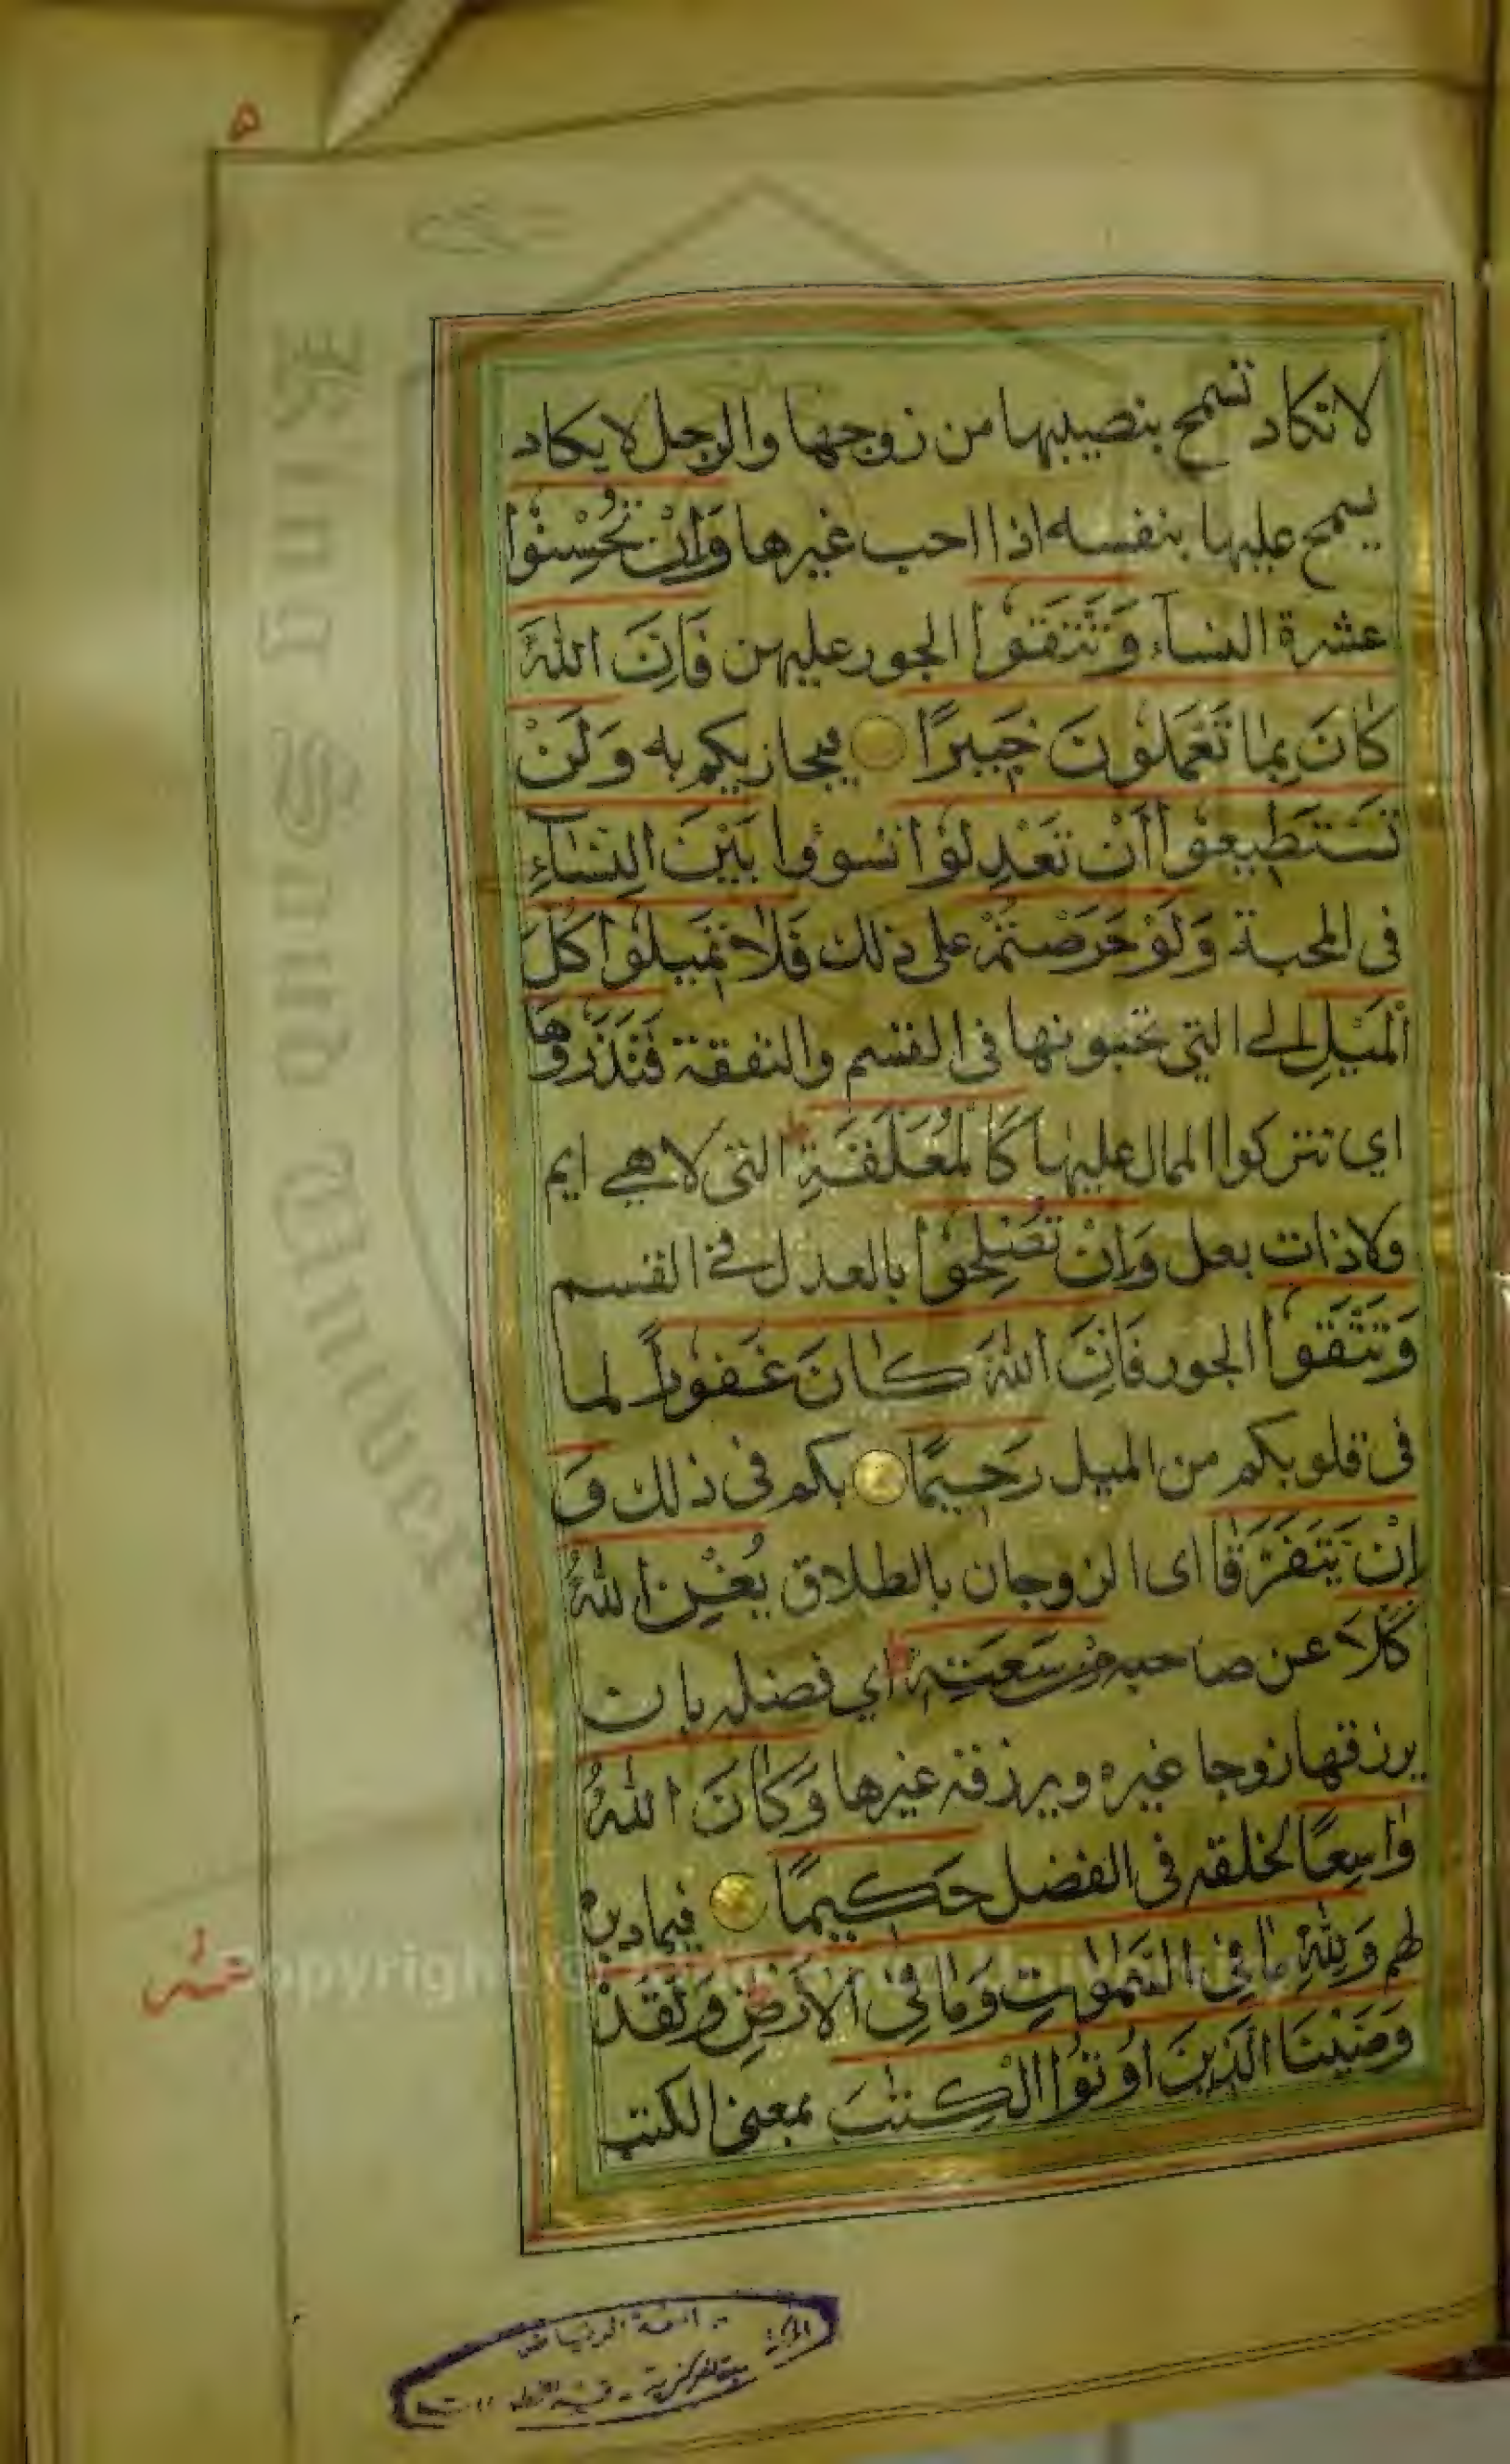 ۵
لا تكاد تسمح بنصيبها من زوجها والرجل لا يكاد
يسمح عليها بنفسه اذا احب غيرها وَاِنْ تُحْسِنُوا
عشرة النسآء وَتَتَّقُوا الجور عليهن فَاِنَّ اللّٰهَ
كَانَ بِمَا تَعْمَلُونَ خَبِيرًا فيجازيكم به وَلَنْ
تَسْتَطِيعُوا اَنْ تَعْدِلُوْا تسووا بَيْنَ النِّسَآءِ
فى المحبة وَلَوْ حَرَصْتُمْ على ذلك فَلَا تَمِيلُوا كُلَّ
الْمَيْلِ الى التى تحبونها فى القسم والنفقة فَتَذَرُوهَا
اي تتركوا الممال عليها كَالْمُعَلَّقَةِ التى لا هي ايم
ولا ذات بعل وَاِنْ تُصْلِحُوا بالعدل في القسم
وَتَتَّقُوا الجور فَاِنَّ اللّٰهَ كَانَ غَفُورًا لما
فى قلوبكم من الميل رَحِيمًا بكم فى ذلك وَ
اِنْ يَتَفَرَّقَا اى الزوجان بالطلاق يُغْنِ اللّٰهُ
كُلًّا عن صاحبه مِنْ سَعَتِهِ اي فضله بان
يرزقها زوجا غيره ويرزقه غيرها وَكَانَ اللّٰهُ
وَاسِعًا لخلقه فى الفضل حَكِيمًا فيما دبره
لهم وَلِلّٰهِ مَا فِي السَّمٰوٰتِ وَمَا فِي الْاَرْضِ وَلَقَدْ
وَصَّيْنَا الَّذِينَ اُوتُوا الْكِتٰبَ بمعنى الكتب
جامعة الرياض